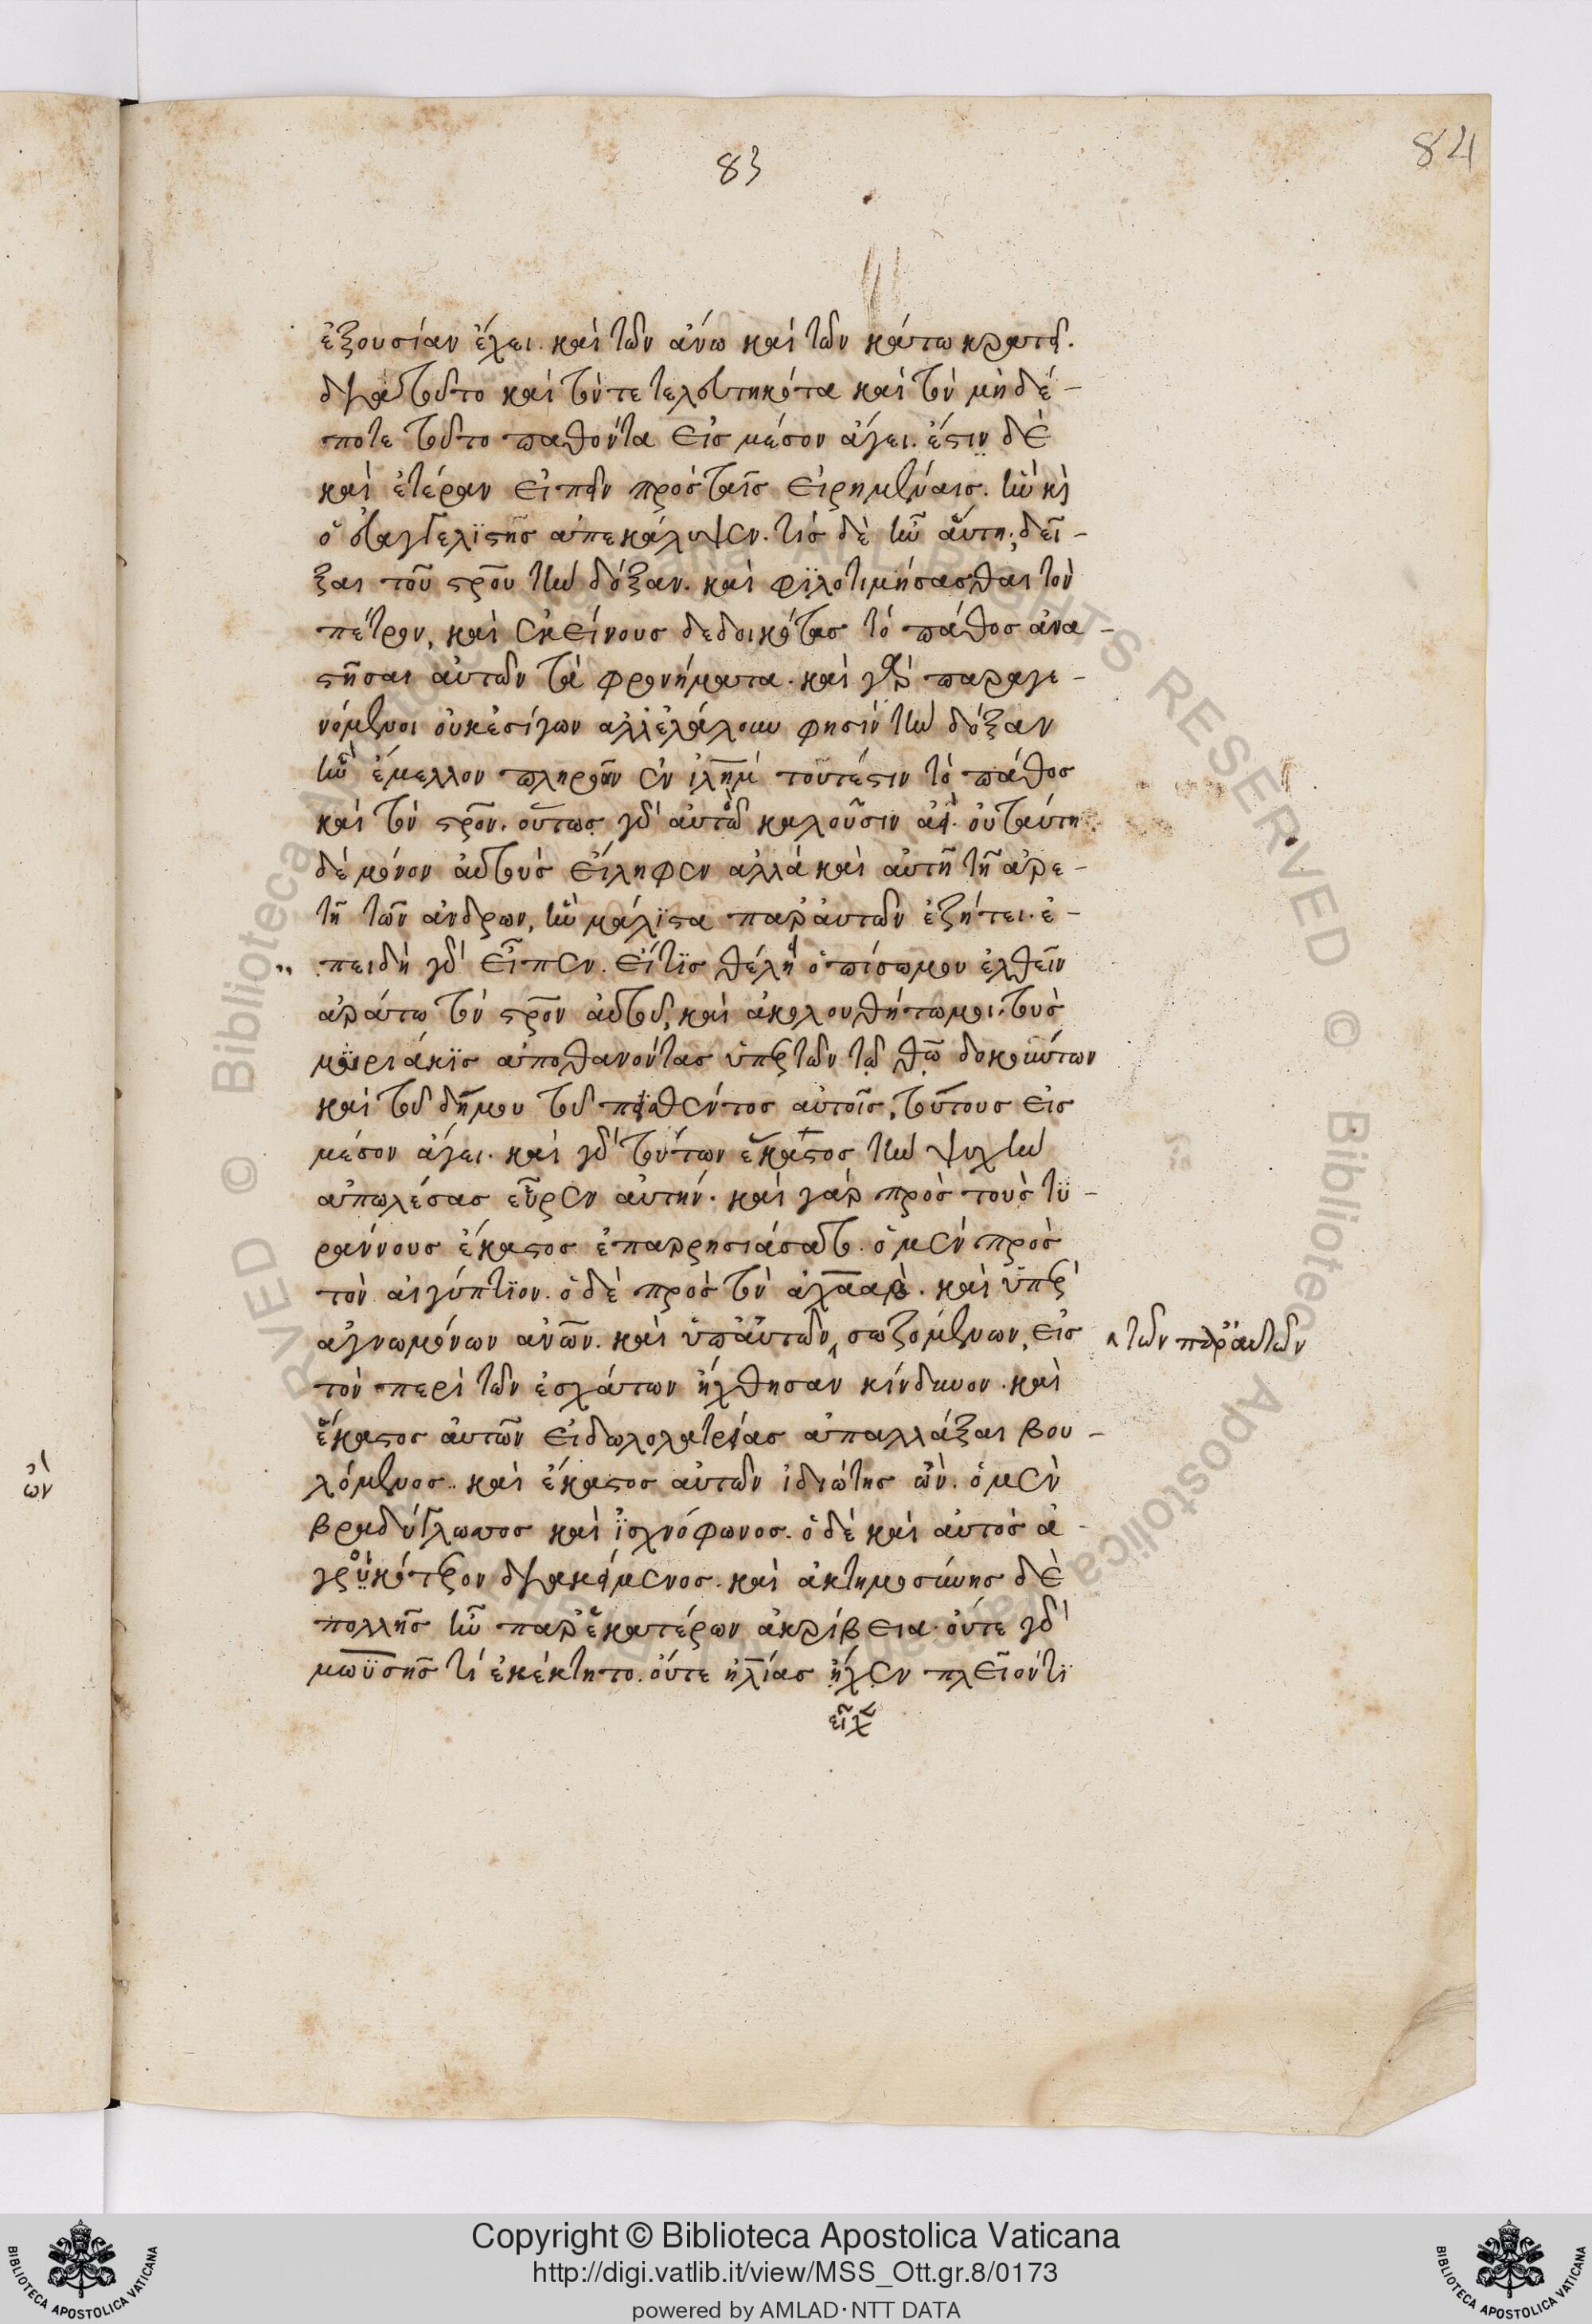 83
84
ἐξουσίαν ἔχει. καὶ τῶν ἄνω καὶ τῶν κάτω κρατεῖ.
διὰ τοῦτο καὶ τόν τε τελευτηκότα καὶ τὸν μηδέ-
ποτε τοῦτο παθόντα εἰς μέσον ἄγει. ἔστιν δὲ
καὶ ἑτέραν εἰπεῖν πρὸς ταῖς εἰρημέναις. ἣν κὶ
ὁ εὐαγγελϊστὴς ἀπεκάλυψεν. τίς δὲ ἦν αὕτη; δεῖ-
ξαι τοῦ στρου τὴν δόξαν. καὶ φϊλοτιμήσασθαι τὸν
πέτρον, καὶ ἐκείνους δεδοικότας τὸ πάθος ἀνα-
στῆσαι αὐτῶν τὰ φρονήματα. καὶ γὰρ παραγε-
νόμενοι οὐκ ἐσίγων ἀλλ' ἐλάλουν φησὶν τὴν δόξαν
ἣν ἔμελλον πληροῦν ἐν ιλημ τουτέστιν τὸ πάθος
καὶ τὸν στρον. οὕτως γὰρ αὐτὸ καλοῦσιν ἀεί. οὐ ταύτη
δὲ μόνον αὐτοὺς εἴληφεν ἀλλὰ καὶ αὐτῆ τῆ ἀρε-
τῆ τῶν ἀνδρων, ἣν μάλϊστα παρ' αὐτῶν ἐζήτει. ἐ-
πειδὴ γὰρ εἶπεν. εἴ τϊς θέλει ὀπίσω μου ἐλθεῖν
ἀράτω τὸν στρον αὐτοῦ, καὶ ἀκολουθήτω μοι. τοὺς
μϋριάκϊς ἀποθανόντας ὑπὲρ τῶν τῶ θω δοκούντων
καὶ τοῦ δήμου τοῦ πεισθέντος αὐτοῖς, τούτους εἰς
μέσον ἄγει. καὶ γὰρ τούτων ἕκαστος τὴν ψυχὴν
ἀπωλέσας εὗρεν αὐτήν. καὶ γὰρ πρὸς τοὺς τϋ-
ράννους ἕκαστος ἐπαρρησιάσατο. ὁ μὲν πρὸς
τὸν αἰγύπτϊον. ὁ δὲ πρὸς τὸν ἀχαάβ. καὶ ὑπὲρ
ἀγνωμόνων ἀνων. καὶ ὑπ' αὐτῶν σωζομένων, εἰς
τῶν παρ' αὐτῶν
τὸν περὶ τῶν ἐσχάτων ἤχθησαν κίνδυνον. καὶ
ἕκαστος αὐτῶν εἰδωλολατρείας ἀπαλλάξαι βου-
λόμενος. καὶ ἕκαστος αὐτῶν ἰδιώτης ὤν. ὁ μὲν
ὤν
βραδύγλωσσος καὶ ἰσχνόφωνος. ὁ δὲ καὶ αὐτὸς ἀ-
γροικότερον διακείμενος. καὶ ἀκτημοσύνης δὲ
πολλῆς ἦν παρ' ἑκατέρων ἀκρίβεια. οὔτε γὰρ
μωϋσῆς τί ἐκέκτητο. οὔτε ἠλίας ἦχεν πλεῖον τϊ
εἶχε
Copyright © Biblioteca Apostolica Vaticana
http://digi.vatlib.it/view/MSS_Ott.gr.8/0173
powered by AMLAD·NTT DATA